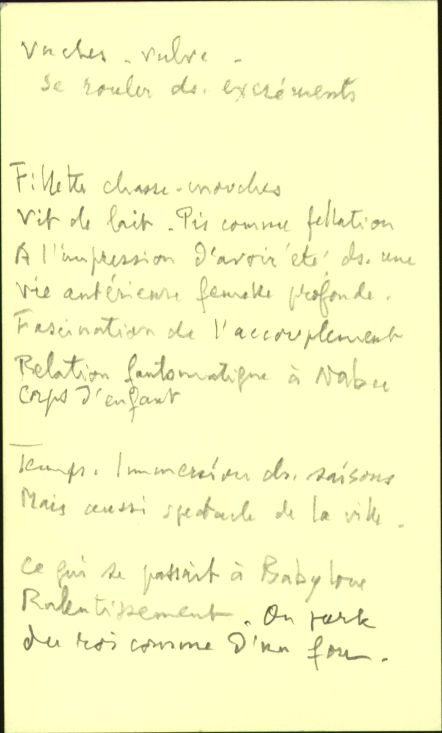 Vaches - vulve -
se rouler ds. excréments
Fillette chasse-mouches
Vit de lait. Pis comme fellation
A l'impression d'avoir été ds. une
vie antérieure femelle profonde.
Fascination de l'accouplement
Relation fantomatique à Nabu
Corps d'enfant
Temps. Immersion ds. saisons
Mais aussi spectacle de la ville.
Ce qui se passait à Babylone
Ralentissement. On parle
du roi comme d'un fou.